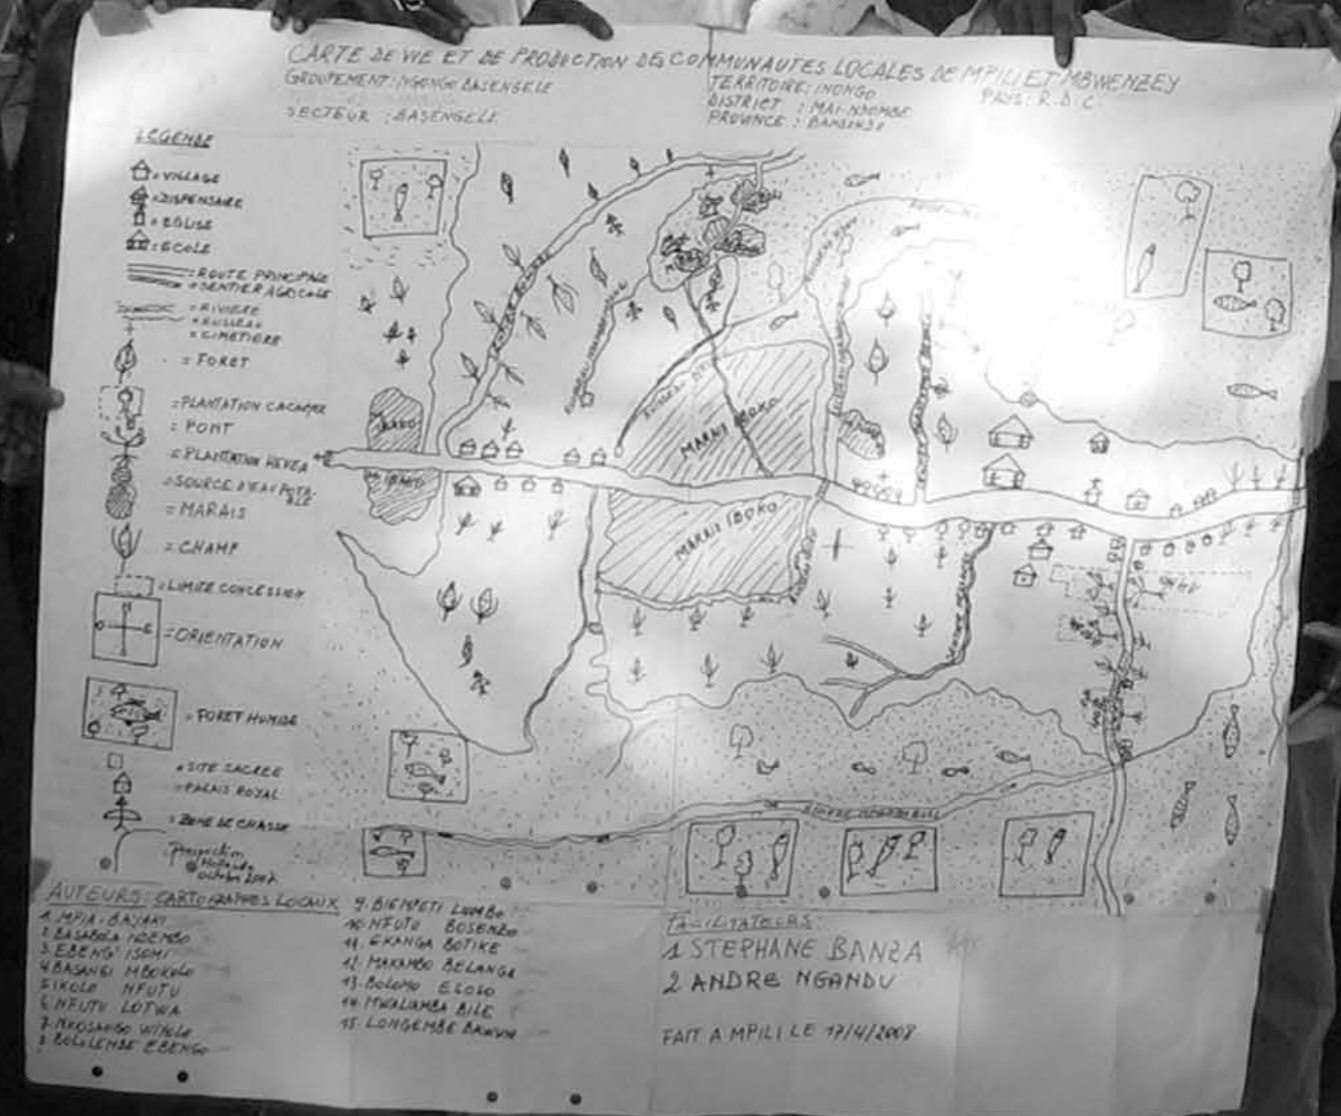 CARTE DE VIE ET DE PRODUCTION DES COMMUNAUTES LOCALES DE MPILI ET MBWENZEY
GROUPEMENT: NGONGO BASENGELE
SECTEUR : BASENGELE
TERRITOIRE: INONGO
PAYS: R.D.C
DISTRICT : MAI-NDOMBE
PROVINCE : BANDUNDU
LEGENDE
= VILLAGE
= DISPENSAIRE
= EGLISE
= ECOLE
= ROUTE PRINCIPALE
= SENTIER AGRICOLE
= RIVIERE
= RUISSEAU
= CIMETIERE
= FORET
= PLANTATION CACAOYER
= PONT
= PLANTATION HEVEA
= SOURCE D'EAU POTABLE
= MARAIS
= CHAMP
= LIMITE CONCESSION
= ORIENTATION
= FORET HUMIDE
= SITE SACREE
= PALAIS ROYAL
= ZONE DE CHASSE
octobre 2007
MARAIS IBOKO
MARAIS IBOKO
AUTEURS: CARTOGRAPHES LOCAUX
1. MPIA-BAYAKI
2. BASABOLA NDEMBO
3. EBENG' ISOMI
4. BASANGI MBOKOLO
5. IKOLO NFUTU
6. NFUTU LOTWA
7. NKOSANGO
8. BOLOLEMBE EBENGO
9. BIEMPETI LUMBO
10. NFUTO BOSENZO
11. EKANGA BOTIKE
12. MAKAMBO BELANGA
13. BOLOMO
14. MWALIAMBA BILE
15. LONGEMBE
FACILITATEURS:
1 STEPHANE BANZA
2 ANDRE NGANDU
FAIT A MPILI LE 17/4/2008